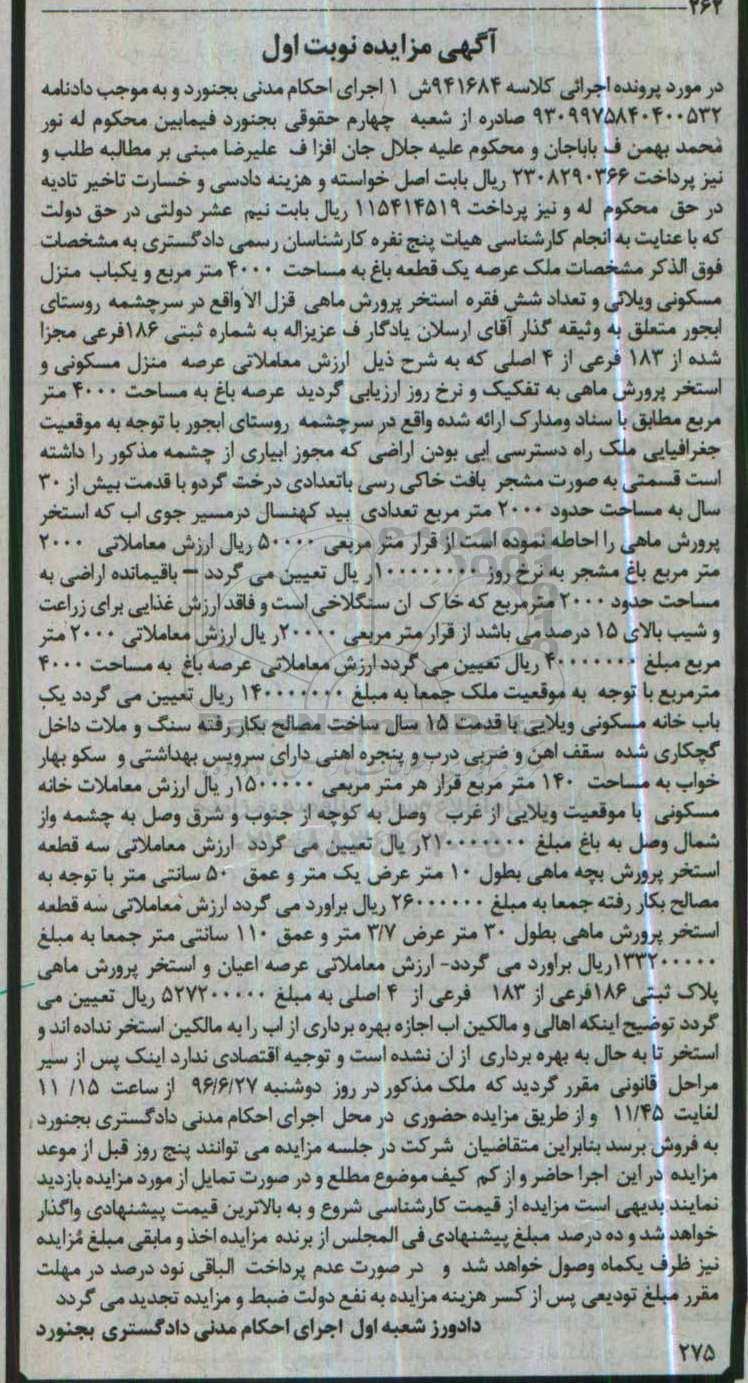 ۲۶۲
آگهی مزایده نوبت اول
در مورد پرونده اجرائی کلاسه ۹۴۱۶۸۴ش ۱ اجرای احکام مدنی بجنورد و به موجب دادنامه
۹۳۰۹۹۷۵۸۴۰۴۰۰۵۳۲ صادره از شعبه چهارم حقوقی بجنورد فیمابین محکوم له نور
محمد بهمن ف باباجان و محکوم علیه جلال جان افزا ف علیرضا مبنی بر مطالبه طلب و
نیز پرداخت ۲۳۰۸۲۹۰۳۶۶ ریال بابت اصل خواسته و هزینه دادسی و خسارت تاخیر تادیه
در حق محکوم له و نیز پرداخت ۱۱۵۴۱۴۵۱۹ ریال بابت نیم عشر دولتی در حق دولت
که با عنایت به انجام کارشناسی هیات پنج نفره کارشناسان رسمی دادگستری به مشخصات
فوق الذکر مشخصات ملک عرصه یک قطعه باغ به مساحت ۴۰۰۰ متر مربع و یکباب منزل
مسکونی ویلائی و تعداد شش فقره استخر پرورش ماهی قزل الا واقع در سرچشمه روستای
ابجور متعلق به وثیقه گذار آقای ارسلان یادگار ف عزیزاله به شماره ثبتی ۱۸۶فرعی مجزا
شده از ۱۸۳ فرعی از ۴ اصلی که به شرح ذیل ارزش معاملاتی عرصه منزل مسکونی و
استخر پرورش ماهی به تفکیک و نرخ روز ارزیابی گردید عرصه باغ به مساحت ۴۰۰۰ متر
مربع مطابق با سناد ومدارک ارائه شده واقع در سرچشمه روستای ابجور با توجه به موقعیت
جغرافیایی ملک راه دسترسی ابی بودن اراضی که مجوز ابیاری از چشمه مذکور را داشته
است قسمتی به صورت مشجر بافت خاکی رسی باتعدادی درخت گردو با قدمت بیش از ۳۰
سال به مساحت حدود ۲۰۰۰ متر مربع تعدادی بید کهنسال درمسیر جوی اب که استخر
پرورش ماهی را احاطه نموده است از قرار متر مربعی ۵۰۰۰۰ ریال ارزش معاملاتی ۲۰۰۰
متر مربع باغ مشجر به نرخ روز ۱۰۰۰۰۰۰۰۰۰ر یال تعیین می گردد – باقیمانده اراضی به
مساحت حدود ۲۰۰۰ مترمربع که خاک ان سنگلاخی است و فاقد ارزش غذایی برای زراعت
و شیب بالای ۱۵ درصد می باشد از قرار متر مربعی ۲۰۰۰۰۰ر یال ارزش معاملاتی ۲۰۰۰ متر
مربع مبلغ ۴۰۰۰۰۰۰۰۰ ریال تعیین می گردد ارزش معاملاتی عرصه باغ به مساحت ۴۰۰۰
مترمربع با توجه به موقعیت ملک جمعا به مبلغ ۱۴۰۰۰۰۰۰۰۰ ریال تعیین می گردد یک
باب خانه مسکونی ویلایی با قدمت ۱۵ سال ساخت مصالح بکار رفته سنگ و ملات داخل
گچکاری شده سقف اهن و ضربی درب و پنجره اهنی دارای سرویس بهداشتی و سکو بهار
خواب به مساحت ۱۴۰ متر مربع قرار هر متر مربعی ۱۵۰۰۰۰۰ر یال ارزش معاملات خانه
مسکونی با موقعیت ویلایی از غرب وصل به کوچه از جنوب و شرق وصل به چشمه واز
شمال وصل به باغ مبلغ ۲۱۰۰۰۰۰۰۰۰ر یال تعیین می گردد ارزش معاملاتی سه قطعه
استخر پرورش بچه ماهی بطول ۱۰ متر عرض یک متر و عمق ۵۰ سانتی متر با توجه به
مصالح بکار رفته جمعا به مبلغ ۲۶۰۰۰۰۰۰۰ ریال براورد می گردد ارزش معاملاتی سه قطعه
استخر پرورش ماهی بطول ۳۰ متر عرض ۳/۷ متر و عمق ۱۱۰ سانتی متر جمعا به مبلغ
۱۳۳۲۰۰۰۰۰ریال براورد می گردد- ارزش معاملاتی عرصه اعیان و استخر پرورش ماهی
پلاک ثبتی ۱۸۶فرعی از ۱۸۳ فرعی از ۴ اصلی به مبلغ ۵۲۷۲۰۰۰۰۰ ریال تعیین می
گردد توضیح اینکه اهالی و مالکین اب اجازه بهره برداری از اب را به مالکین استخر نداده اند و
استخر تا به حال به بهره برداری از ان نشده است و توجیه اقتصادی ندارد اینک پس از سیر
مراحل قانونی مقرر گردید که ملک مذکور در روز دوشنبه ۹۶/۶/۲۷ از ساعت ۱۵/ ۱۱
لغایت ۱۱/۴۵ و از طریق مزایده حضوری در محل اجرای احکام مدنی دادگستری بجنورد
به فروش برسد بنابراین متقاضیان شرکت در جلسه مزایده می توانند پنج روز قبل از موعد
مزایده در این اجرا حاضر و از کم کیف موضوع مطلع و در صورت تمایل از مورد مزایده بازدید
نمایند بدیهی است مزایده از قیمت کارشناسی شروع و به بالاترین قیمت پیشنهادی واگذار
خواهد شد و ده درصد مبلغ پیشنهادی فی المجلس از برنده مزایده اخذ و مابقی مبلغ مزایده
نیز ظرف یکماه وصول خواهد شد و در صورت عدم پرداخت الباقی نود درصد در مهلت
مقرر مبلغ تودیعی پس از کسر هزینه مزایده به نفع دولت ضبط و مزایده تجدید می گردد
دادورز شعبه اول اجرای احکام مدنی دادگستری بجنورد
۲۷۵